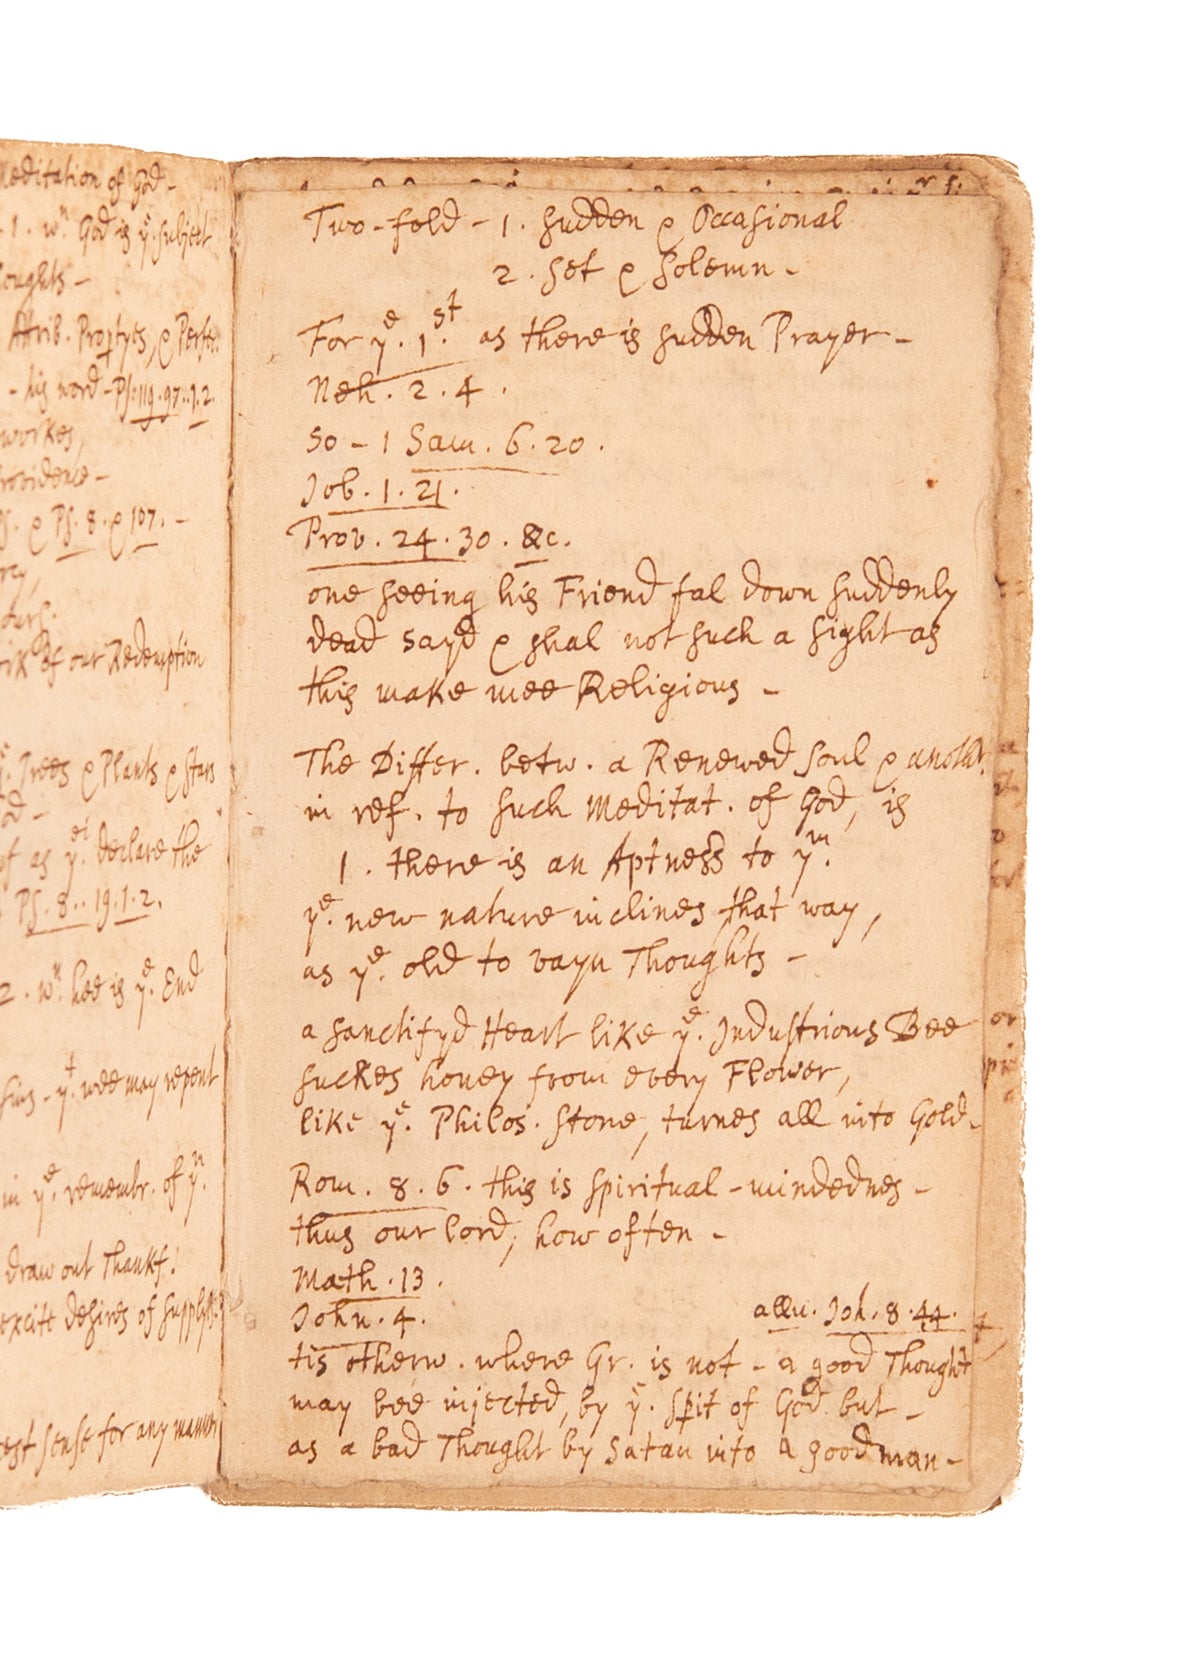 Meditation of God -
1. wn. God is ye. subject
thoughts -
Attrib. Proptyes, & Perfec.
- his word - Ps: 119. 97..1.2.
workes,
Providence -
Ps. & Ps. 8. & 107. -
of our Redemption
Trees & Plants & Stars
as yei. declare the
Ps. 8.. 19.1.2.
2. wn. hee is ye. End
sins - yt. wee may repent
in ye. remembr. of yn.
draw out Thankf:
excite desires of
sense for any
Two-fold - 1. sudden & Occasional
2. set & solemn -
For ye. 1st. as there is sudden Prayer -
Neh. 2. 4.
so - 1 Sam. 6. 20.
Job. 1. 21.
Prov. 24. 30. &c.
one seeing his Friend fal down suddenly
dead sayd & shal not such a sight as
this make mee Religious -
The Differ. betw. a Renewed soul & anothr.
in ref. to such Meditat. of God, is
1. there is an Aptness to ym.
ye. new nature inclines that way,
as ye. old to vayn Thoughts -
a sanctifyd Heart like ye. Industrious Bee
suckes honey from every Flower,
like ye. Philos. stone, turnes all into Gold -
Rom. 8. 6. this is spiritual-mindednes -
thus our lord, how often -
Math. 13.
John. 4.
allu. Joh. 8. 44.
tis otherw. where Gr. is not - a good Thought
may bee injected, by ye. spit of God but -
as a bad Thought by Satan into a good man -